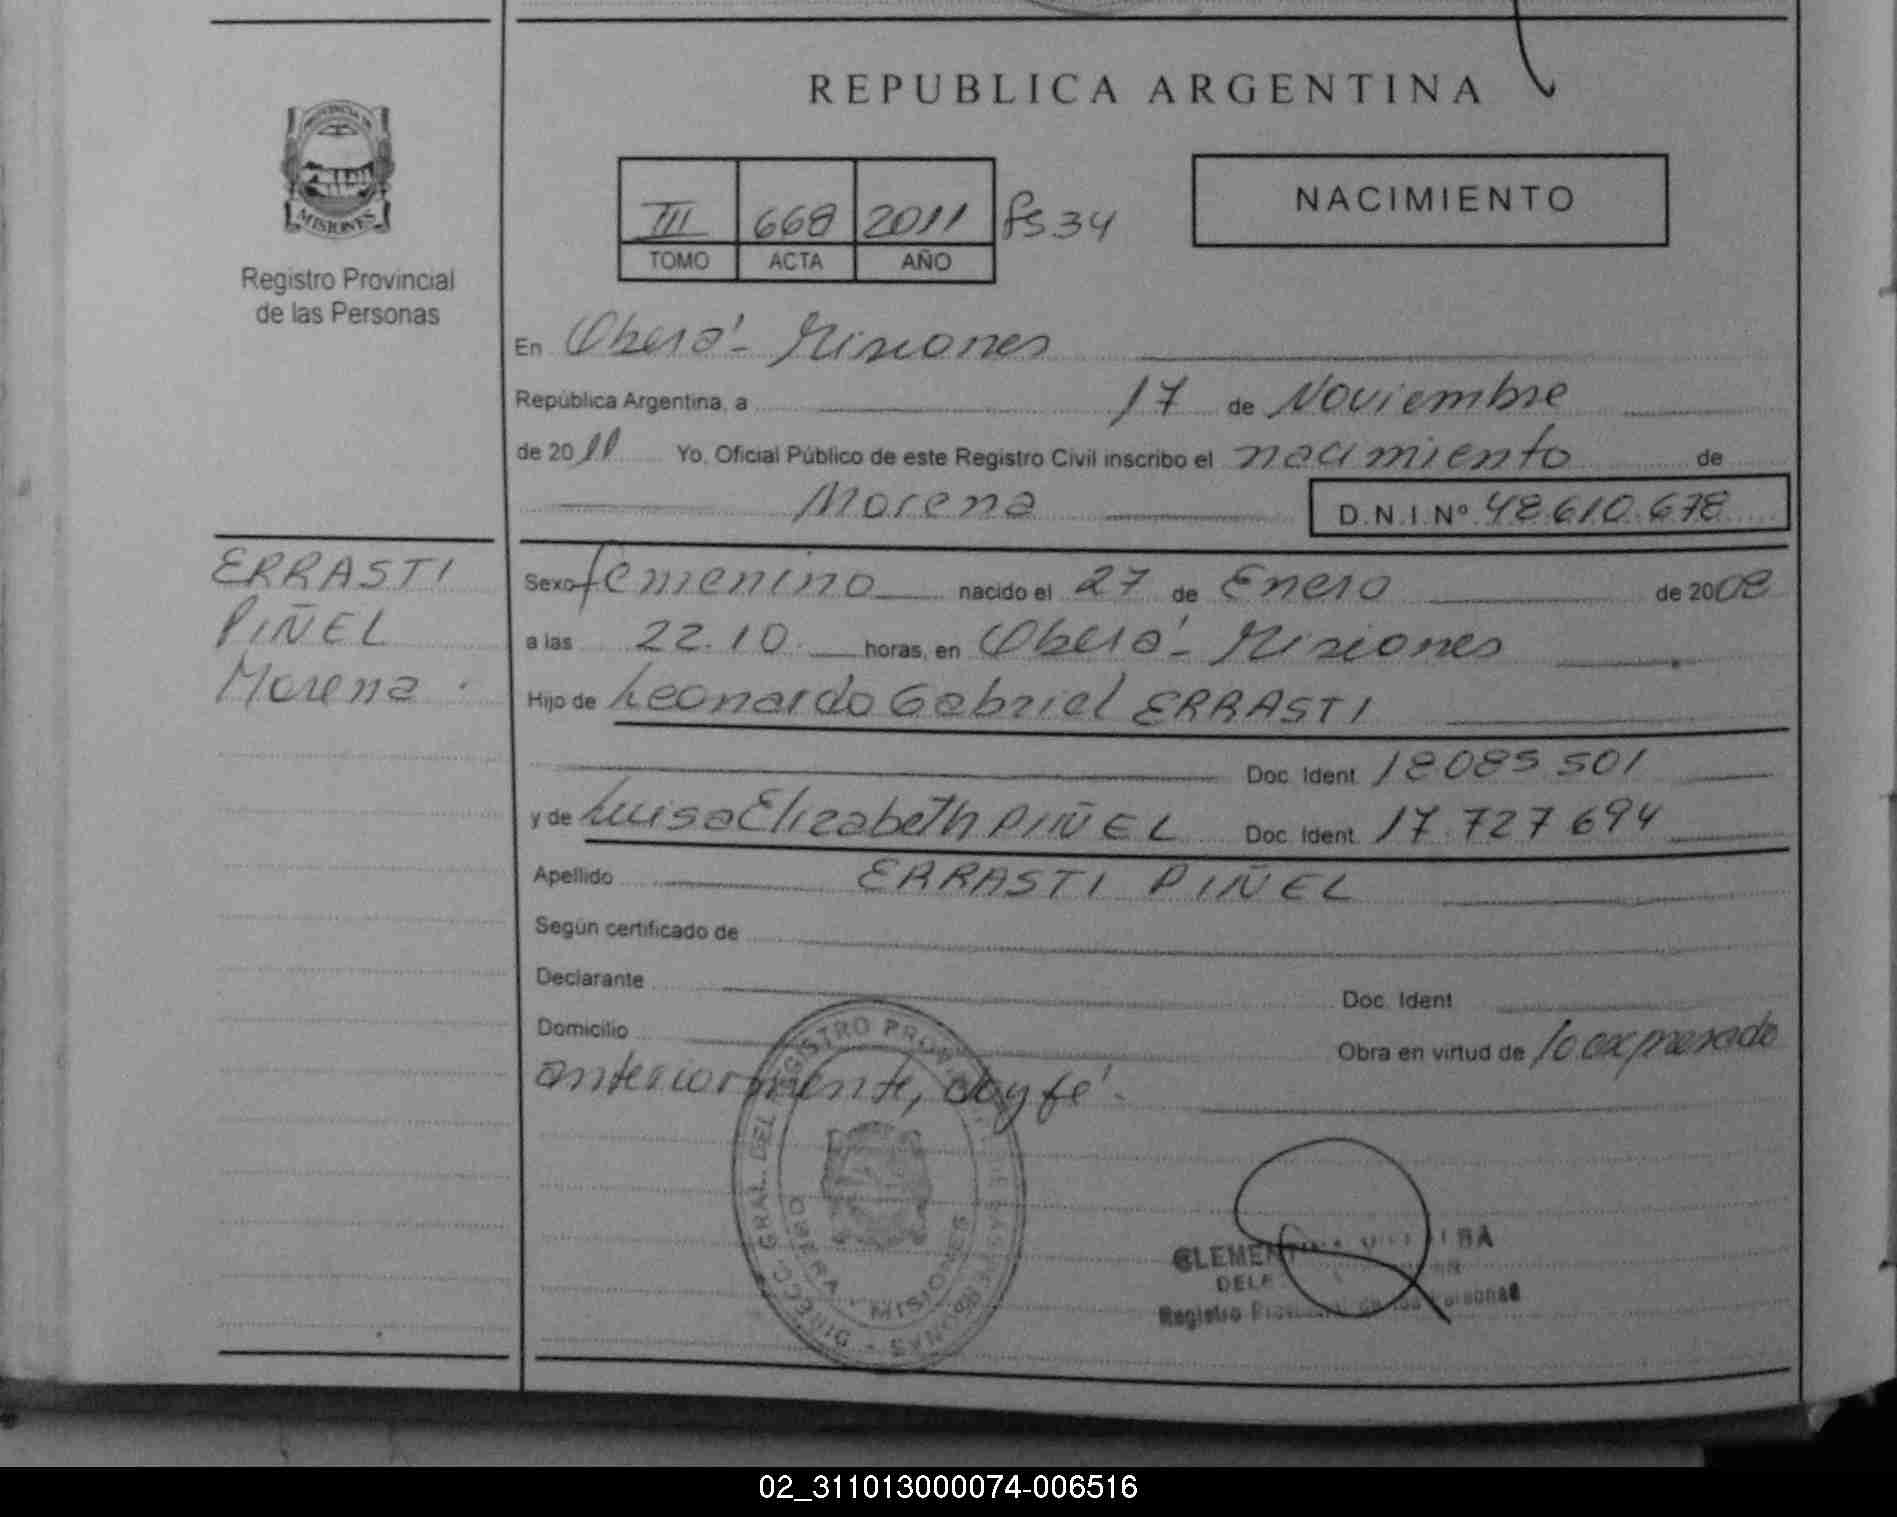 REPUBLICA ARGENTINA
PROVINCIA DE
MISIONES
Registro Provincial
de las Personas
III 668 2011 fs 34
TOMO ACTA AÑO
NACIMIENTO
En Oberá - Misiones
República Argentina, a 17 de Noviembre
de 2011 Yo, Oficial Público de este Registro Civil inscribo el nacimiento de
Morena D.N.I.Nº 48.610.678
ERRASTI
PIÑEL
Morena
Sexo femenino nacido el 27 de Enero de 2008
a las 22.10 horas, en Oberá - Misiones
Hijo de Leonardo Gabriel ERRASTI
Doc. Ident. 18085 501
y de Luisa Elizabeth PIÑEL Doc. Ident. 17 727 694
Apellido ERRASTI PIÑEL
Según certificado de
Declarante Doc. Ident.
Domicilio Obra en virtud de lo expresado
anteriormente, doy fé.
DIRECC. GRAL. DEL REGISTRO PROVINCIAL DE LAS PERSONAS
OBERA - MISIONES
Registro Provincial de las Personas
02_311013000074-006516